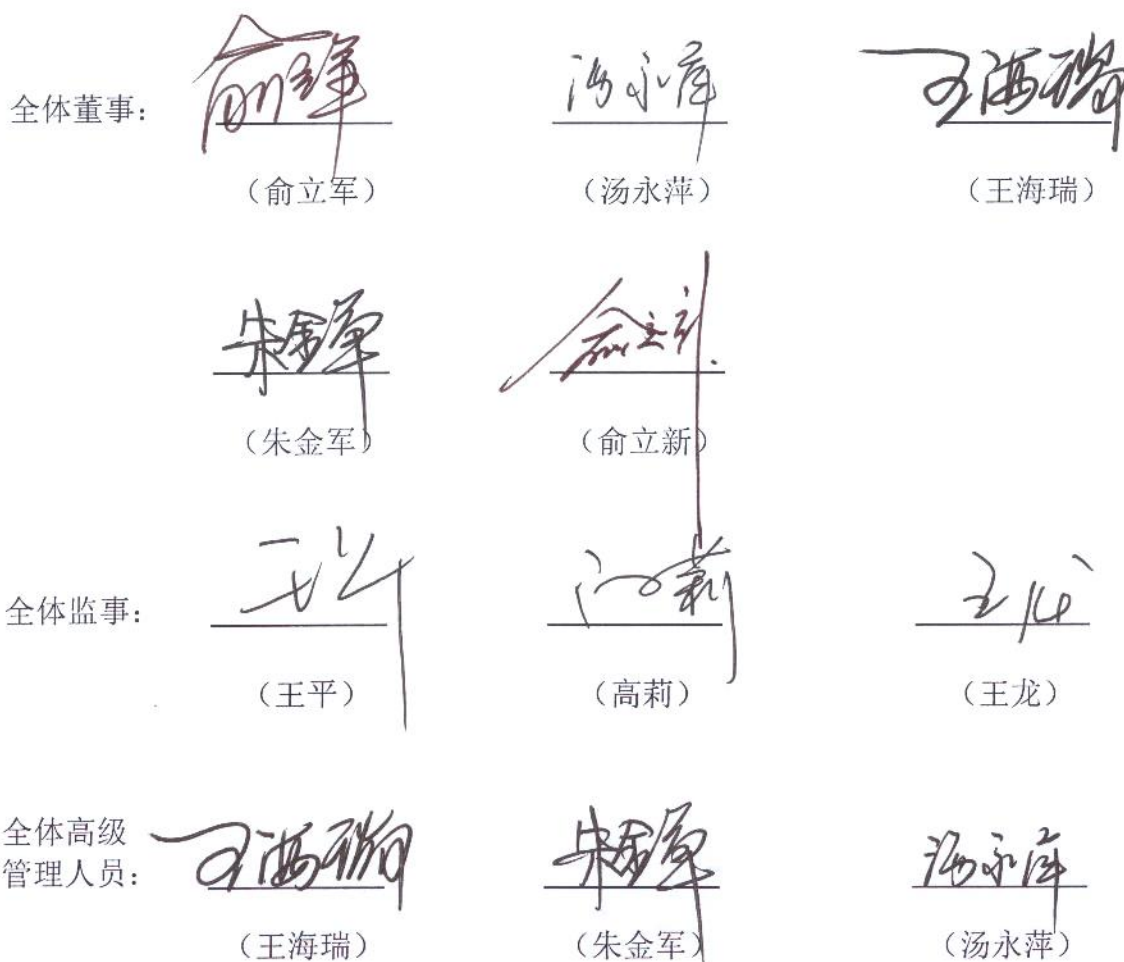 全体董事： 俞立军 汤永萍 王海瑞
（俞立军） （汤永萍） （王海瑞）
朱金军 俞立新
（朱金军） （俞立新）
全体监事： 王平 高莉 王龙
（王平） （高莉） （王龙）
全体高级
管理人员： 王海瑞 朱金军 汤永萍
（王海瑞） （朱金军） （汤永萍）